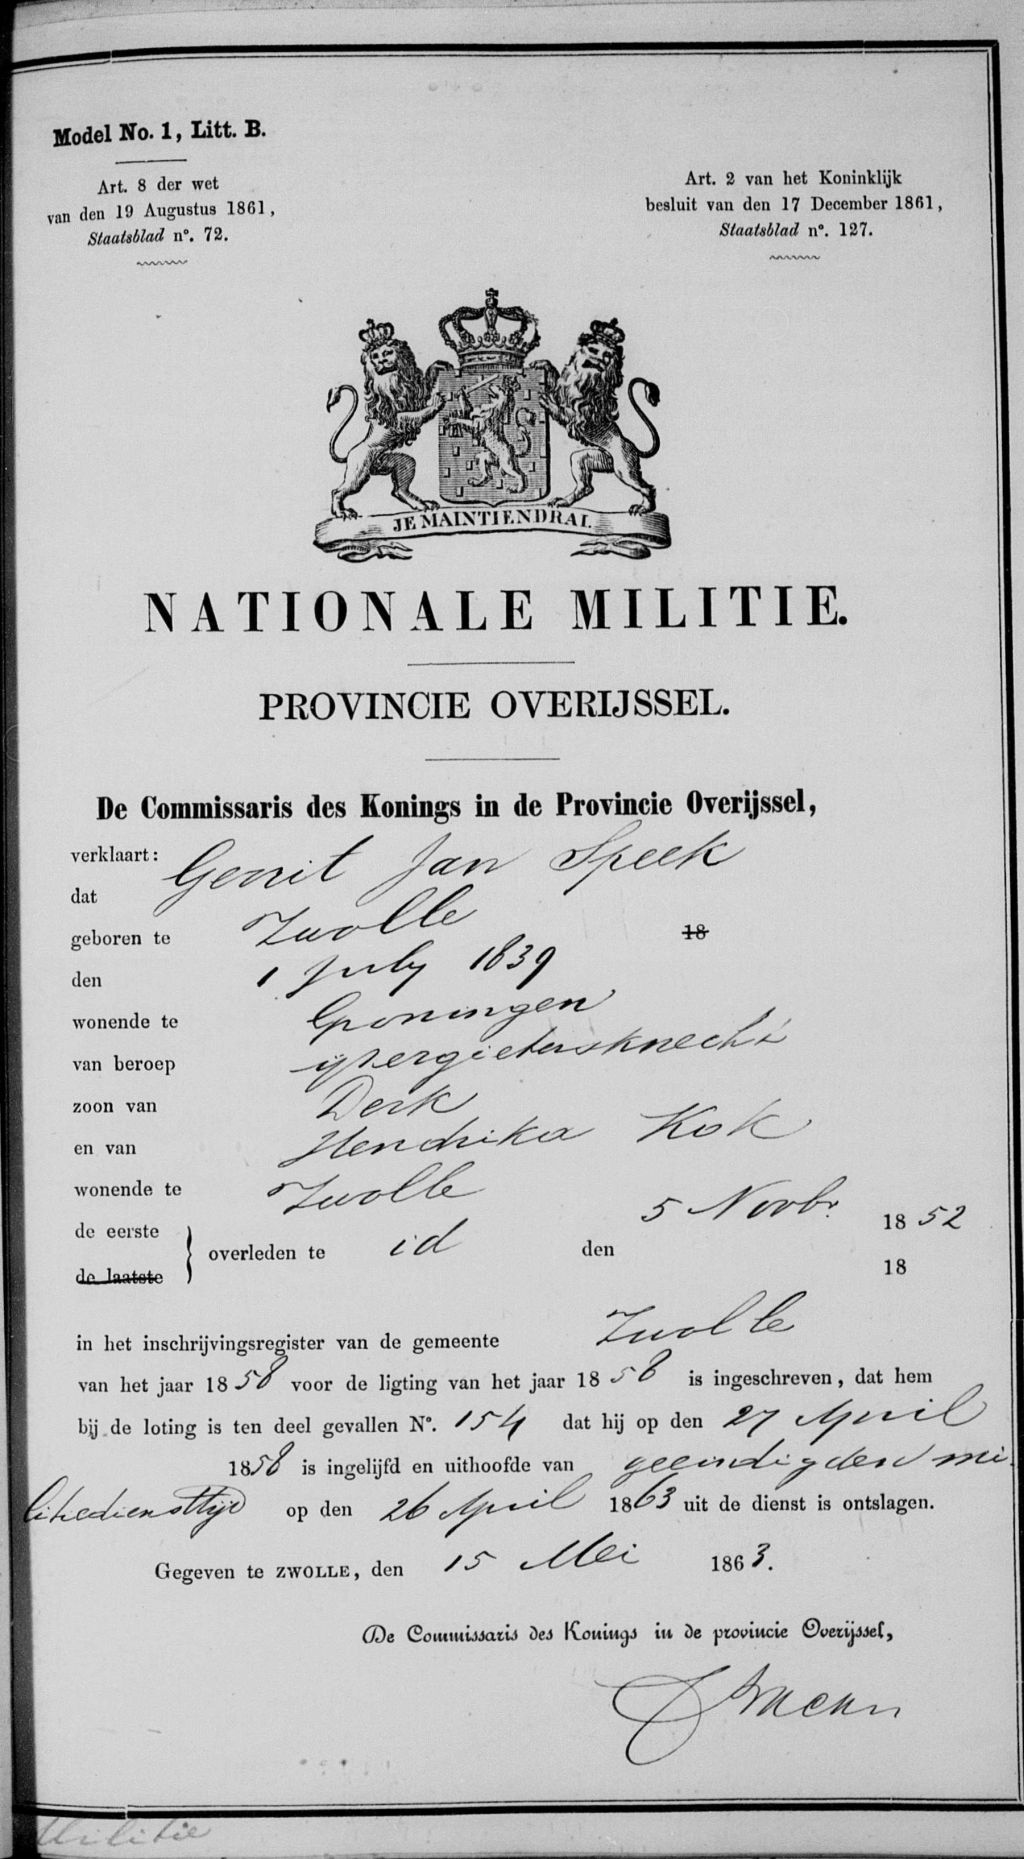 Model No. 1, Litt. B.
Art. 8 der wet
van den 19 Augustus 1861,
Staatsblad n°. 72.
Art. 2 van het Koninklijk
besluit van den 17 December 1861,
Staatsblad n°. 127.
JE MAINTIENDRAI.
NATIONALE MILITIE.
PROVINCIE OVERIJSSEL.
De Commissaris des Konings in de Provincie Overijssel,
verklaart:
dat Gerrit Jan Speek
geboren te Zwolle
den 1 July 1839 18
wonende te Groningen
van beroep ijzergietersknecht
zoon van Derk
en van Hendrika Kok
wonende te Zwolle
de eerste
de laatste } overleden te id den 5 Novbr. 1852
18
in het inschrijvingsregister van de gemeente Zwolle
van het jaar 1858 voor de ligting van het jaar 1858 is ingeschreven, dat hem
bij de loting is ten deel gevallen N°. 154 dat hij op den 27 April
1858 is ingelijfd en uithoofde van geeindigden mi-
litiediensttijd op den 26 April 1863 uit de dienst is ontslagen.
Gegeven te ZWOLLE, den 15 Mei 1863.
De Commissaris des Konings in de provincie Overijssel,
Militie